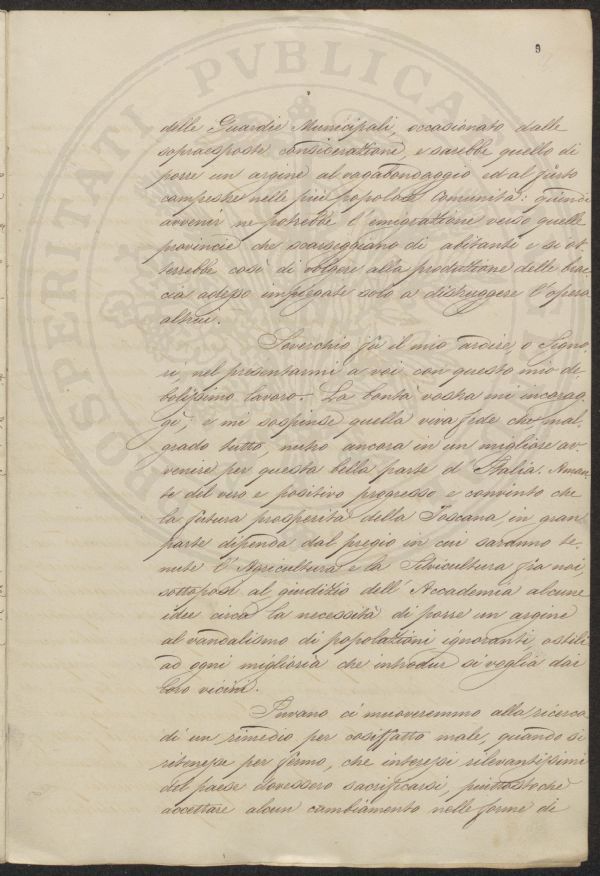 9
PROSPERITATI PVBLICAE
delle Guardie Municipali, occasionato dalle
sopraesposte considerazioni e sarebbe quello di
porre un argine al vagabondaggio ed al furto
campestre nelle più popolose Comunità: quindi
avvenir ne potrebbe l'emigrazione verso quelle
provincie che scarseggiano di abitanti e si ot
terrebbe così di volgere alla produzione delle brac
cia adesso impiegate solo a distruggere l'opera
altrui.
Soverchio fu il mio ardire, o Signo,
ri, nel presentarmi a voi con questo mio de
bolissimo lavoro. La bontà vostra mi incorag,
gì, e mi sospinse quella viva fede che mal,
grado tutto, nutro ancora in un migliore av,
venire per questa bella parte d'Italia. Aman,
te del vero e positivo progresso e convinto che
la futura prosperità della Toscana, in gran
parte dipenda dal pregio in cui saranno te,
nute l'Agricultura e la Silvicultura fra noi,
sottoposi al giudizio dell'Accademia alcune
idee circa la necessità di porre un argine
al vandalismo di popolazioni ignoranti, ostili
ad ogni miglioria che introdur si voglia dai
loro vicini.
Invano ci muoveremmo alla ricerca
di un rimedio per cosiffatto male, quando si
ritenesse per fermo, che interessi rilevantissimi
del paese dovessero sacrificarsi, piuttostochè
accettare alcun cambiamento nelle forme di